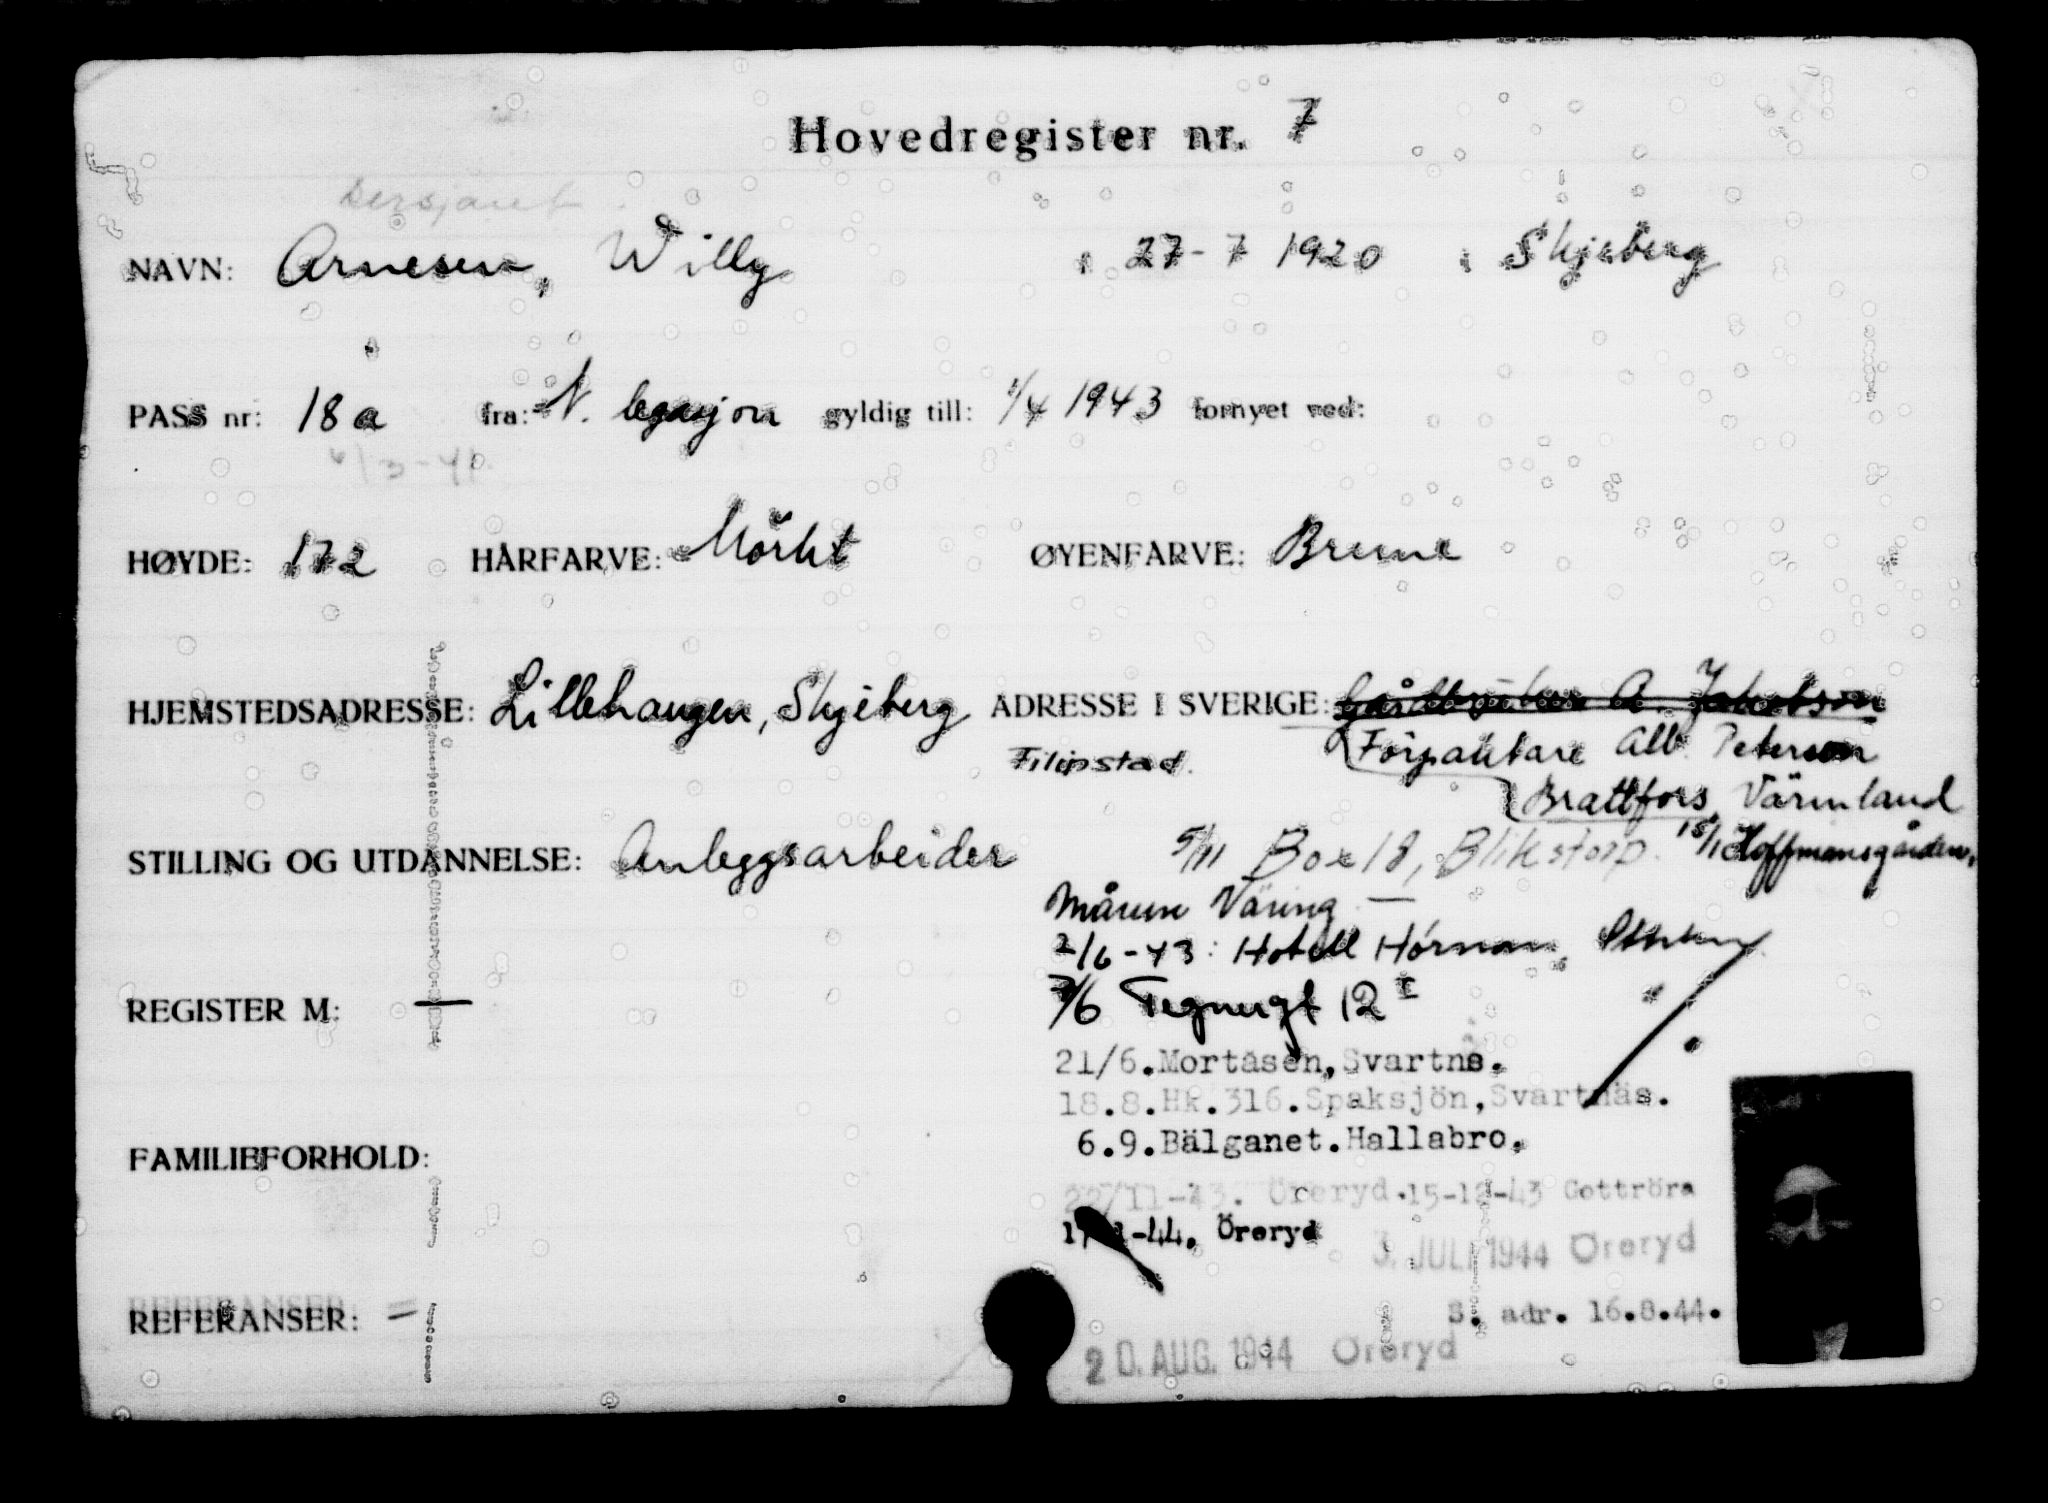 Hovedregister nr. 7
sersjant
NAVN: Arnesen, Willy 27-7 1920 i Skjeberg
PASS nr: 18a fra: N. legasjon gyldig till: 1/4 1943 fornyet ved:
6/3-41.
HØYDE: 172 HÅRFARVE: Mörkt ØYENFARVE: Brune
HJEMSTEDSADRESSE: Lillehaugen, Skjeberg ADRESSE I SVERIGE: A. Jakobson
Filipstad. Förpaktare Alb. Peterson
Brattfors, Värmland
STILLING OG UTDANNELSE: Anleggsarbeider 5/11 Box 18, Blikstorp. Hoffmansgården,
Våring
2/6-43: Hotell Hörnan,
REGISTER M: — 7/6 Tegnergt 12 I "
21/6. Mortåsen, Svartnä.
18.8. Hk. 316. Spaksjön, Svartnäs.
FAMILIEFORHOLD: 6.9. Bälganet. Hallabro.
22/11-43. Öreryd. 15-12-43 Gottröra
-44. Öreryd
3. JULI 1944 Öreryd
REFERANSER: = S. adr. 16.8.44.
20. AUG. 1944 Öreryd